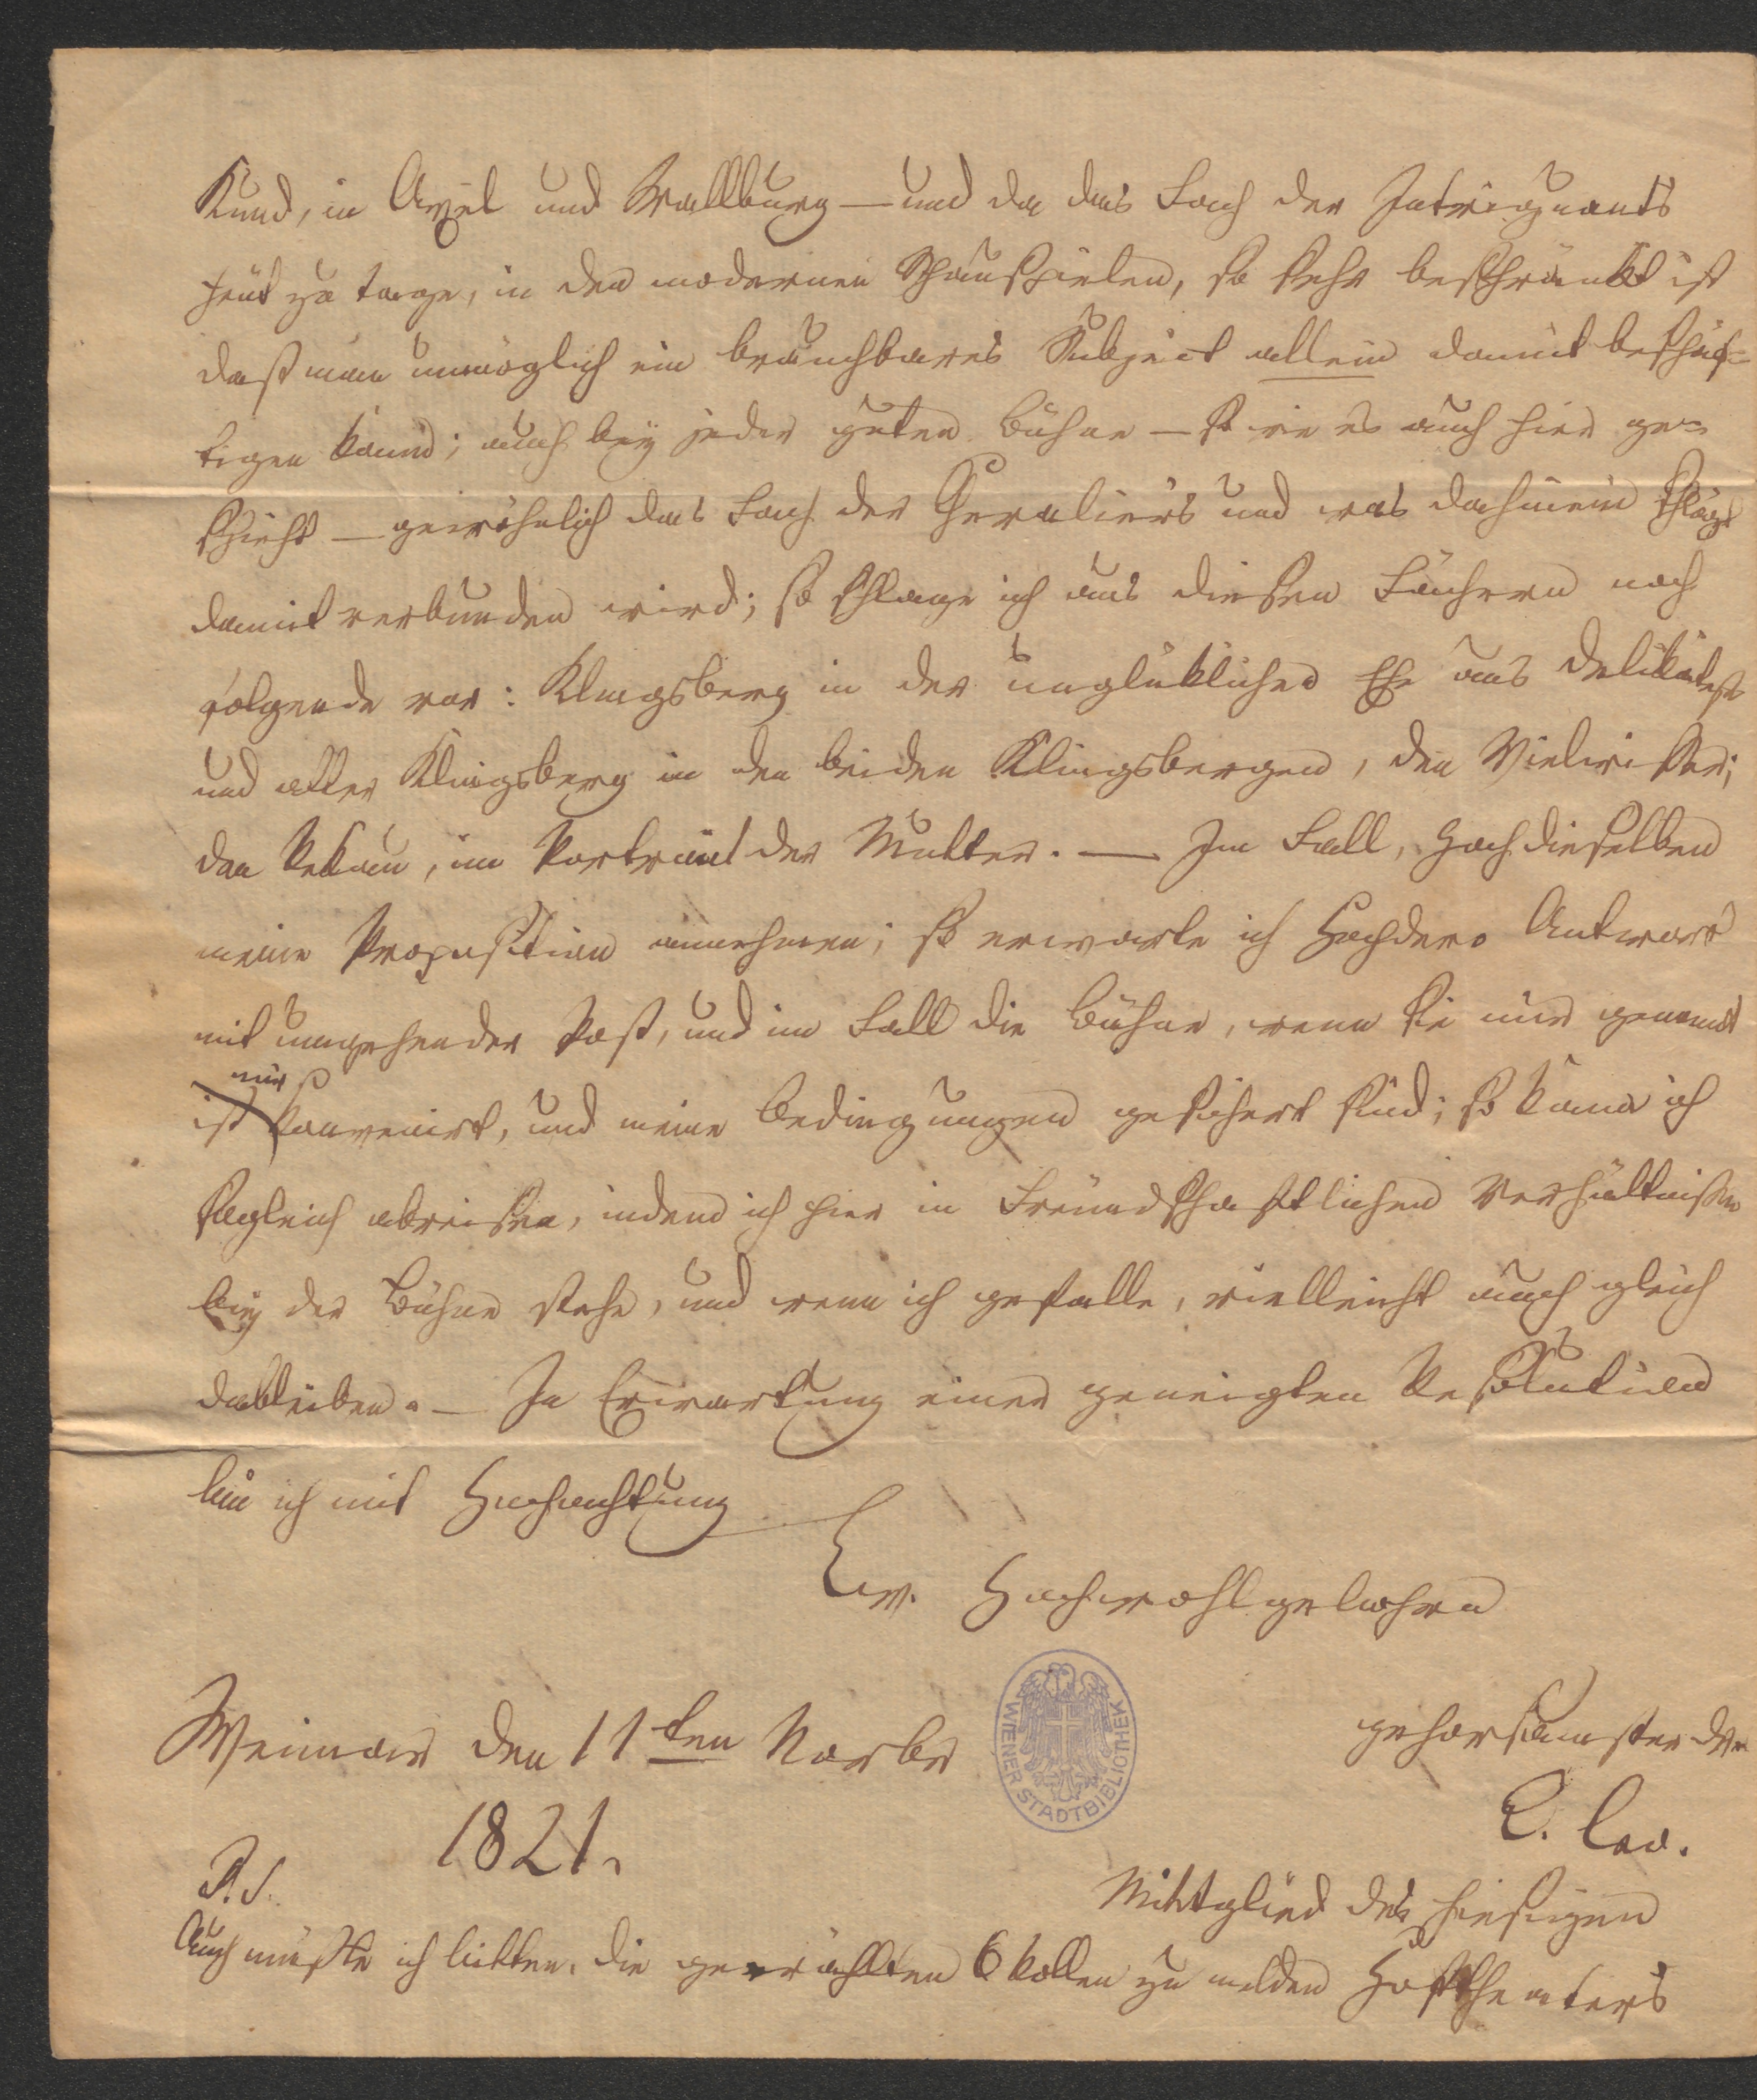 Knud, in Axel und Wallburg — und da das Fach der Intriguants
heut zu tage, in den modernen Schauspielen, so sehr beschränkt ist
daß man unmöglich ein brauchbares Subject allein damit beschäf=
tigen kann; auch bey jeder guten Bühne — so wie es auch hier ge=
schieht — gewöhnlich das Fach der Chevaliers und was dahinein schlägt
damit verbunden wird; so schlage ich aus diesen Fächern noch
folgende vor: Klingsberg in der unglüklichen Ehe aus Delikatesse
und alter Klingsberg in den beiden Klingsbergen, den Vielwisser;
den Rekau, im Portrait der Mutter. — Im Fall, Hochdieselben
meine Proposition annehmen; so erwarte ich Hochdero Antwort
mit umgehender Post, und im Fall die Bühne, wenn sie mir genannt
mir
ist konvenirt, und meine Bedingungen gesichert sind; so kann ich
sogleich abreisen, indem ich hier in Freundschaftlichen Verhältnissen
bey der Bühne stehe, und wenn ich gefalle, vielleicht auch gleich
dableiben. — In Erwartung einer geneigten Resolution
bin ich mit Hochachtung
Ew. Hochwohlgebohren
Weimar den 11ten Novbr
gehorsamster Dr
1821.
P.S.
Mittglied des hiesigen
Auch müßte ich bitten, die gewählten 6 Rollen zu melden
Hoftheaters
WIENER STADTBIBLIOTHEK